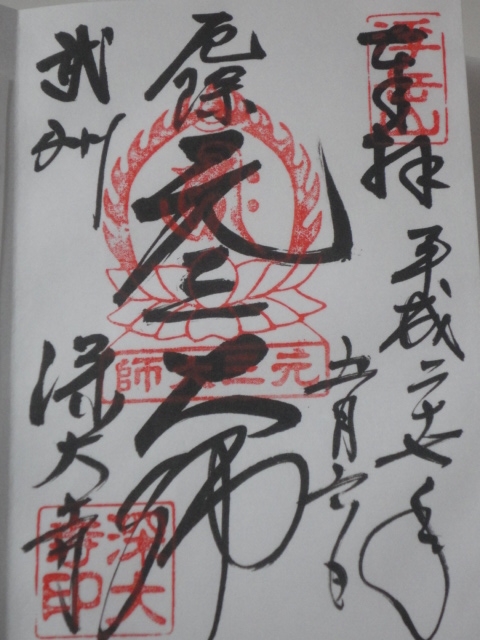 浮岳山
奉拝
平成二十七年
五月六日
厄除
元三大師
元三大師
武州
深大寺
深大寺印